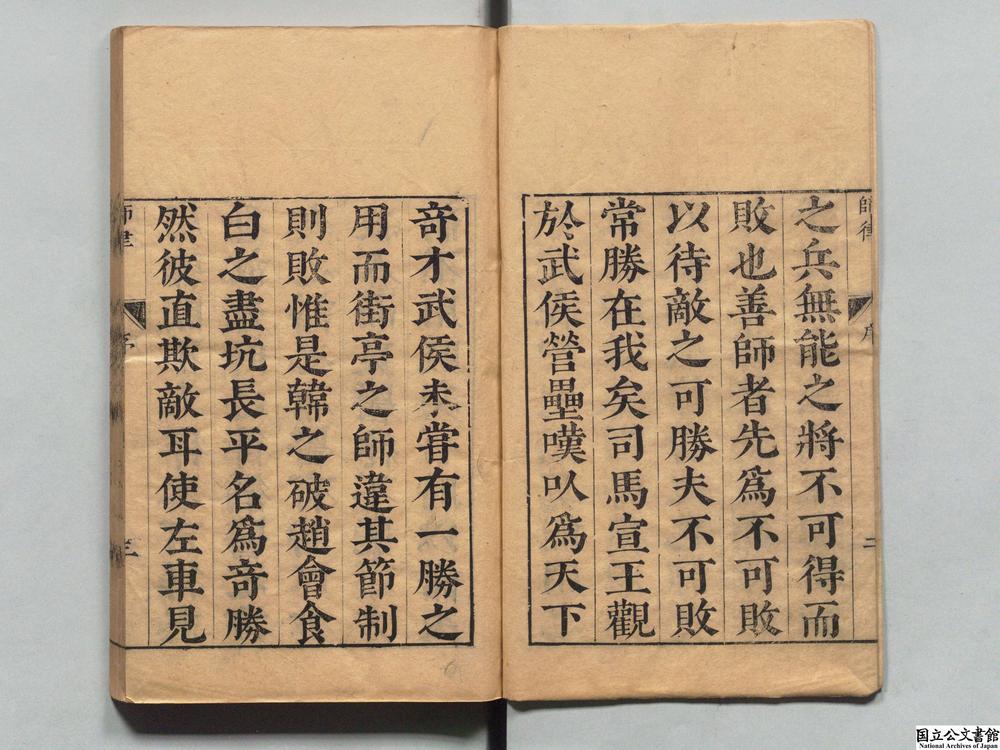 師律
序
二
之兵無能之將不可得而
敗也善師者先爲不可敗
以待敵之可勝夫不可敗
常勝在我矣司馬宣王觀
於武侯營壘嘆以爲天下
奇才武侯未嘗有一勝之
用而街亭之師違其節制
則敗惟是韓之破趙會食
白之盡坑長平名爲奇勝
然彼直欺敵耳使左車見
師律
序
三
国立公文書館
National Archives of Japan